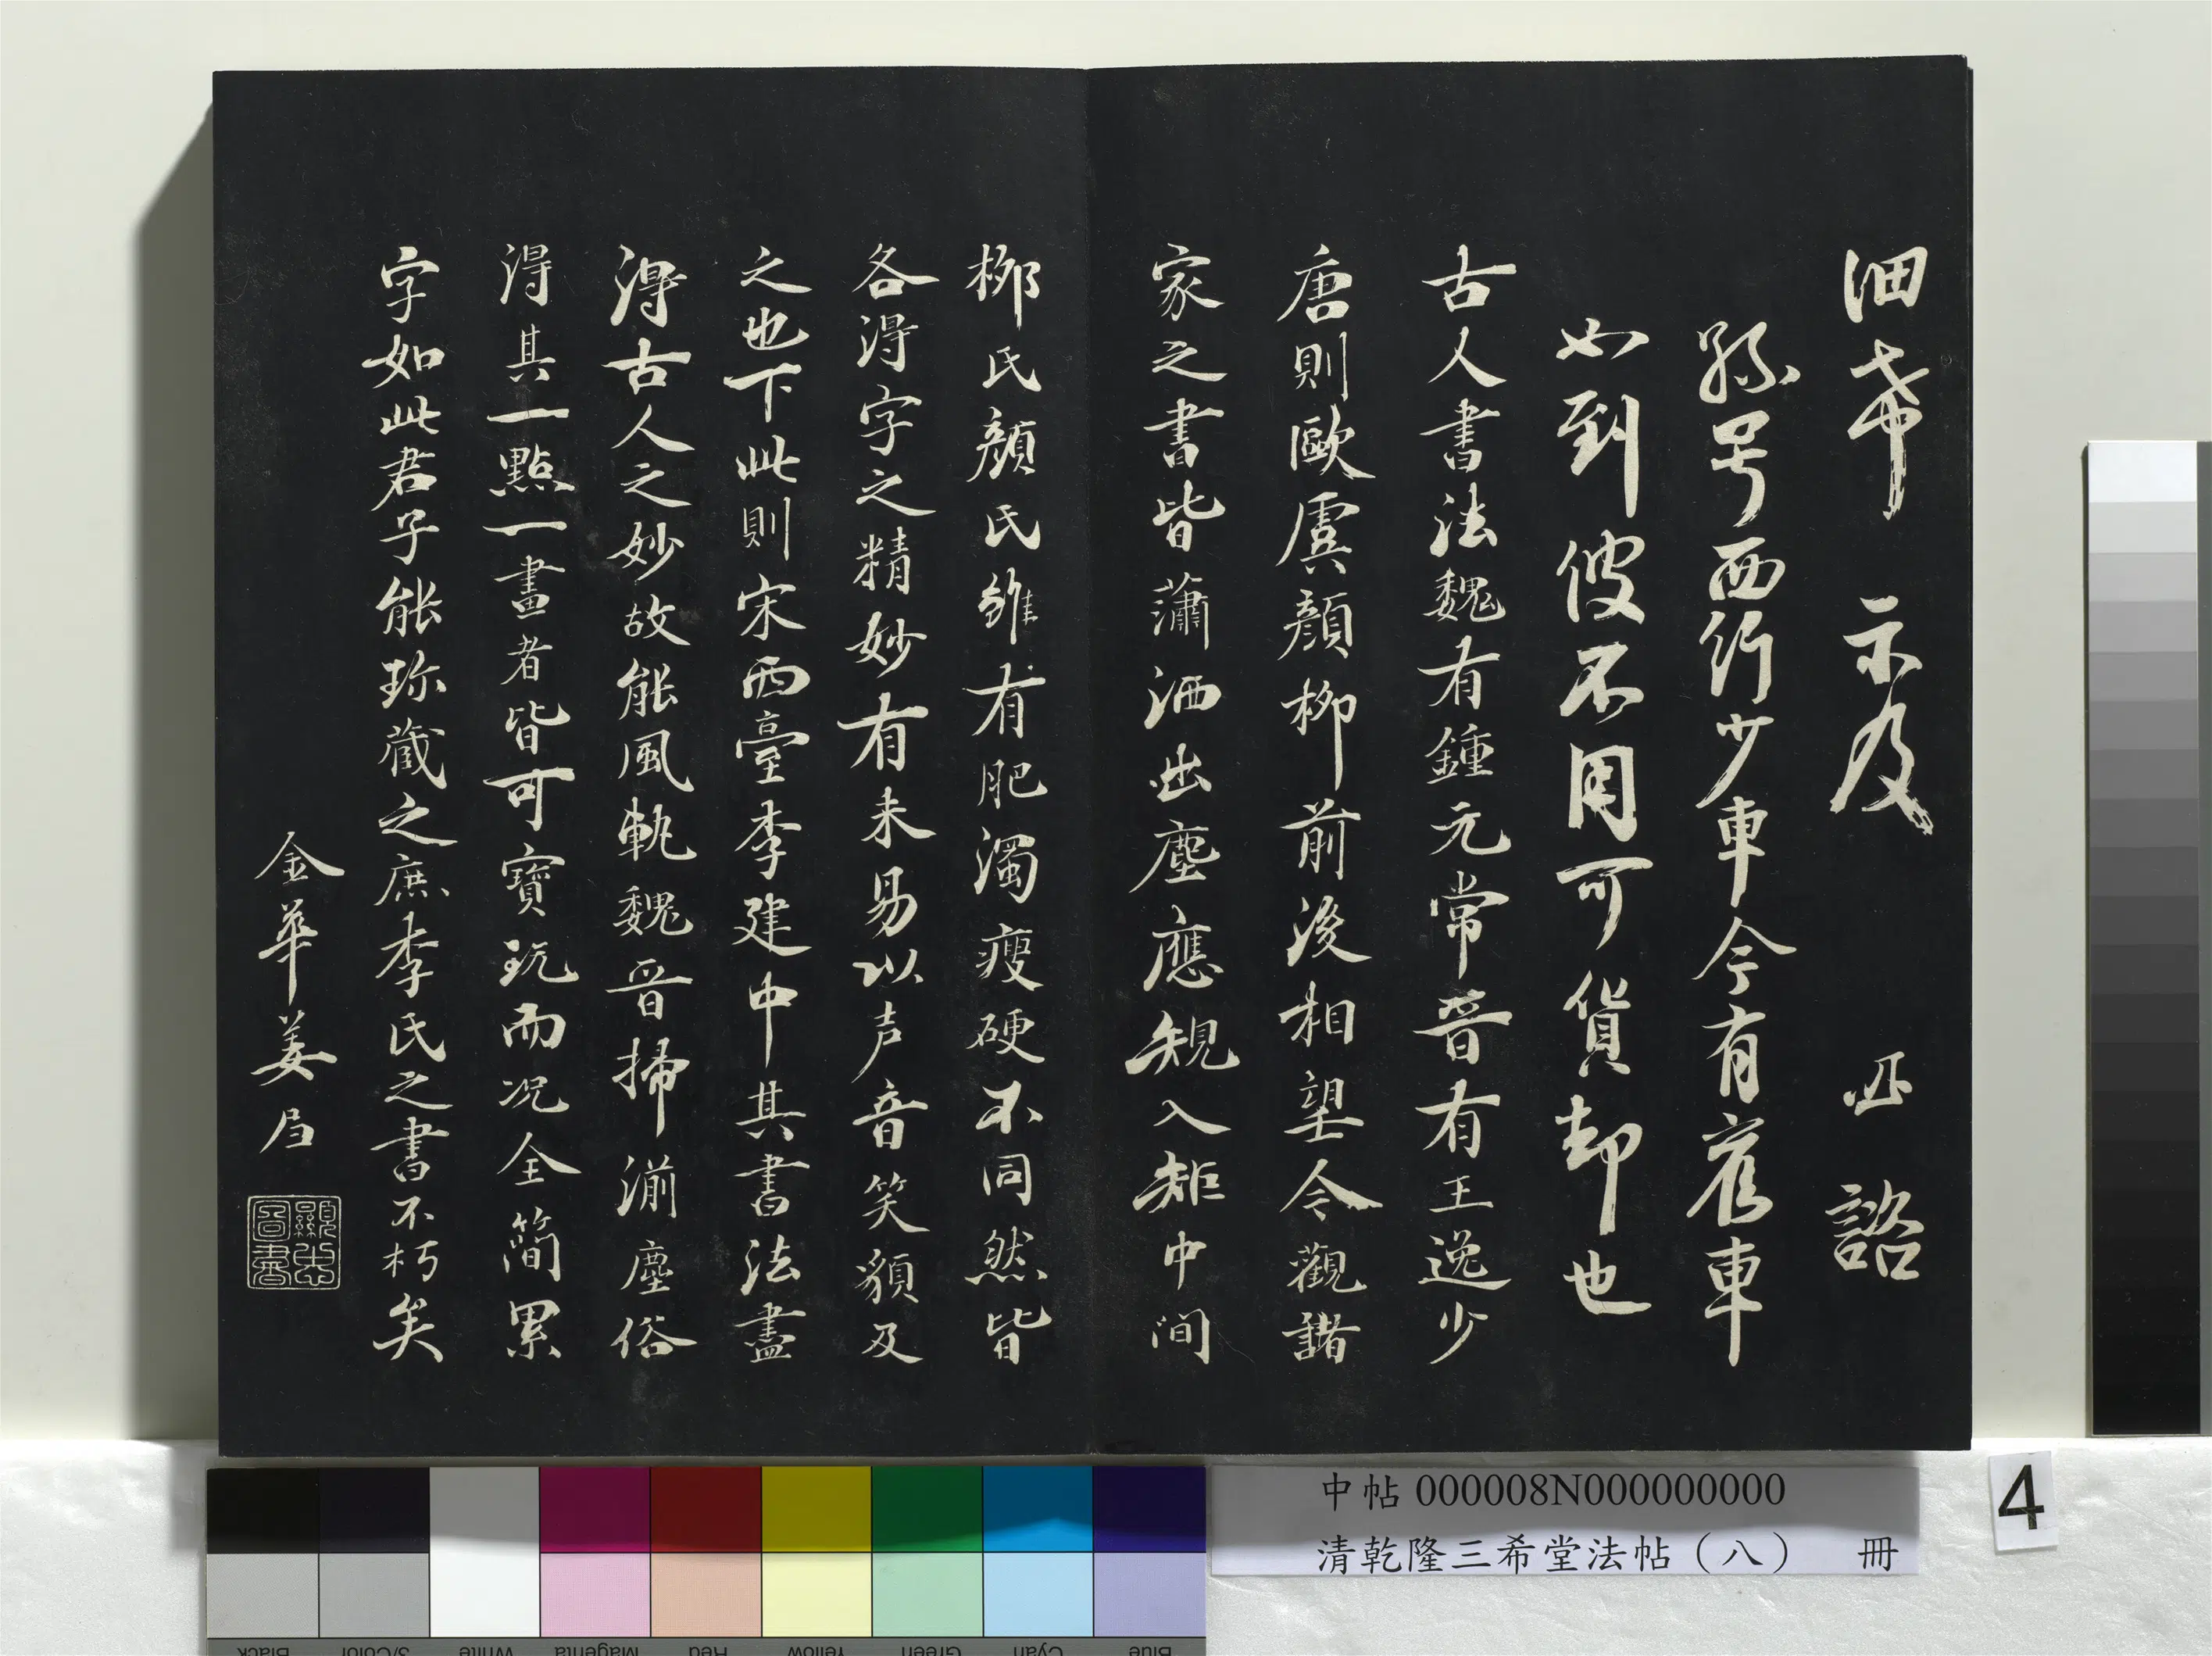 細希 示及 必諮
孫号西行少車今有舊車
如到彼不用可貨却也
古人書法魏有鍾元常晉有王逸少
唐則歐虞顏柳前後相望今觀諸
家之書皆瀟洒出塵應規入矩中間
柳氏顏氏雖有肥濁瘦硬不同然皆
各得字之精妙有未易以声音笑貌及
之也下此則宋西臺李建中其書法盡
得古人之妙故能風軌魏晉掃湔塵俗
得其一點一畫者皆可寶玩而况全簡累
字如此君子能珎蔵之庶李氏之書不朽矣
金華姜
中帖 000008N000000000
清乾隆三希堂法帖（八） 冊
4
Black
3/Color
White
Magenta
Red
Yellow
Green
Cyan
Blue